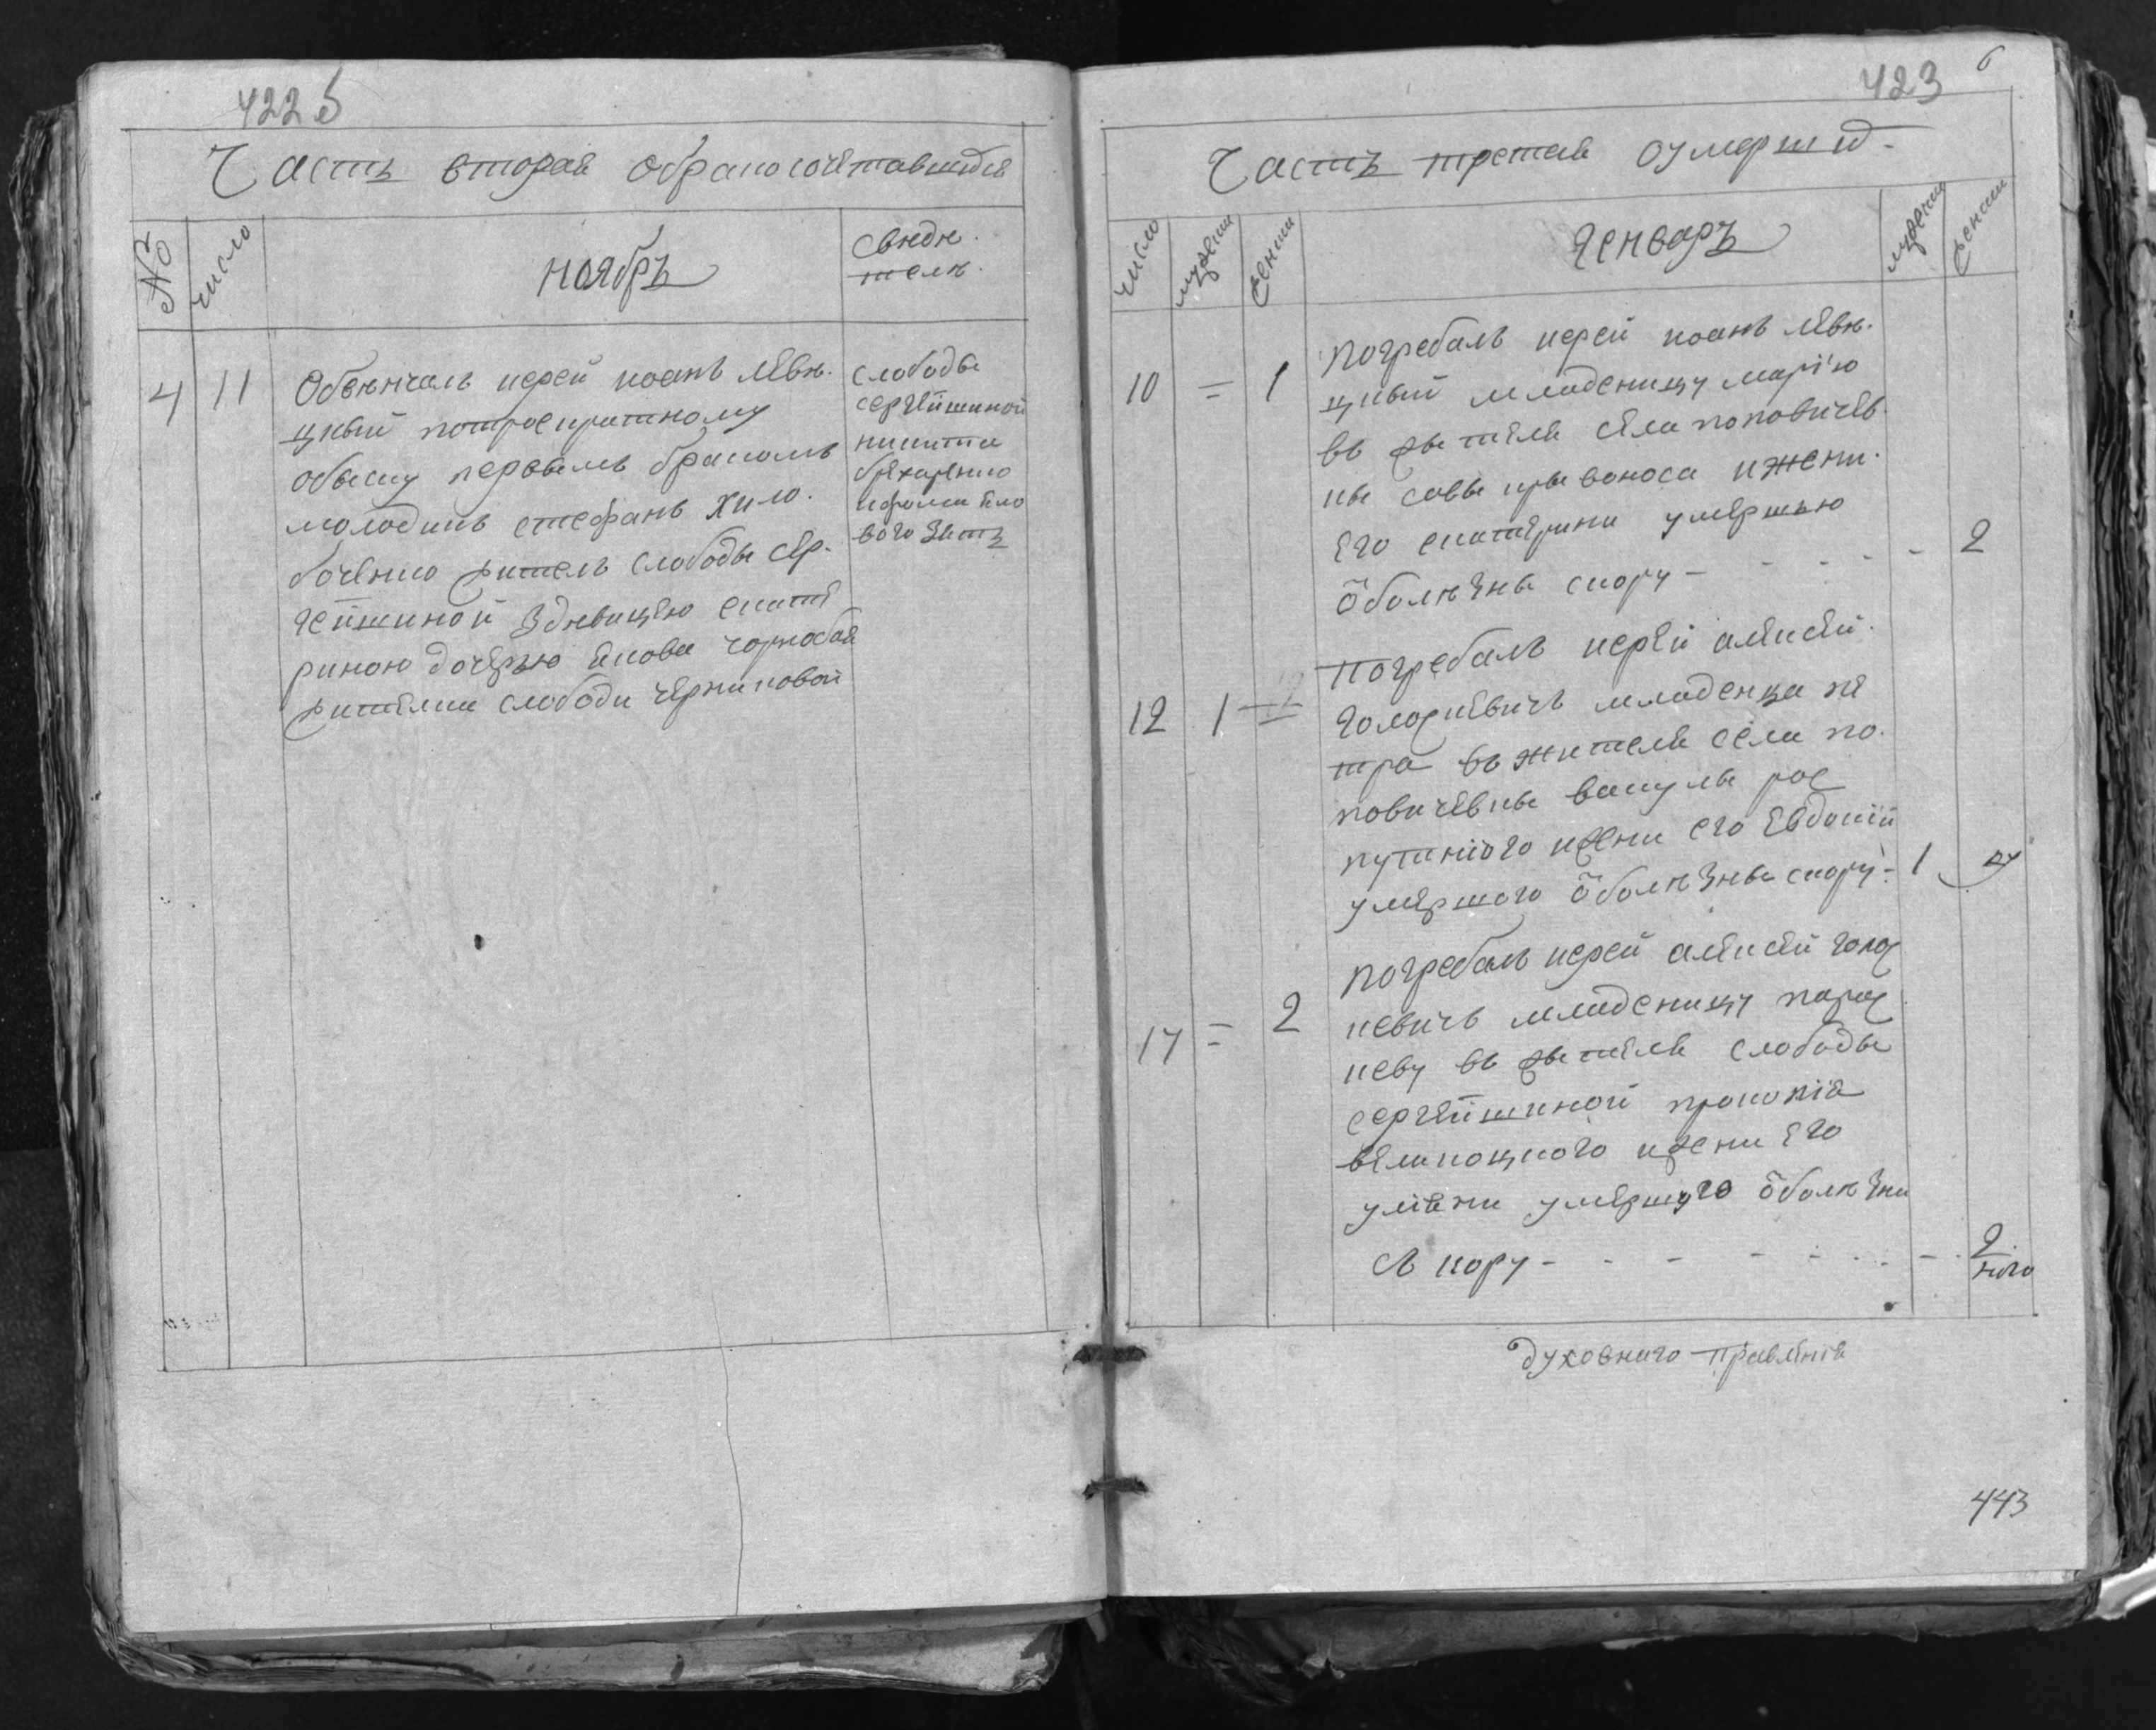 422б
Часть вторая обракосочетавшихся
№
число
ноябрь
свидѣ.
телѣ.
4
11
Обвѣнчалъ иерей иоанъ левѣ.
цкый потроекратному
обыску первымъ бракомъ
молодикъ стефанъ хило.
боченко житель слободы сер.
гейшиной здѣвицею екате
риною дочерью якова чорнобая
жителки слободи черниковой
слободы
сергейшиной
никита
бѣхаренко
ифома
вого зять
423
6
Часть третая оумерших
число
мужеска
женска
Генварь
мужеска
женска
10
=
1
Погребалъ иерей иоанъ левѣ.
цкый младеницу марїю
въ жытеля села поповичев
кы савы крывоноса ижени.
его екатерини умершью
ѿболѣзны скору - - - - -
2
12
1
=
Погребалъ иерей алексей
голоркевичъ младенца пе
тра въ жителя села по.
повичевкы вакулы рос
путнїого ижени его евдокїи
умершого ѿболѣзны скору =
1
17
=
2
Погребалъ иерей алексей голор
кевичъ младеницу парас
кеву въ жытеля слободы
сергейшиной прокопїя
великоцкого ижени его
улияни умершуго ѿболѣзни
скору - - - - - - - -
2
духовнаго правленія
443